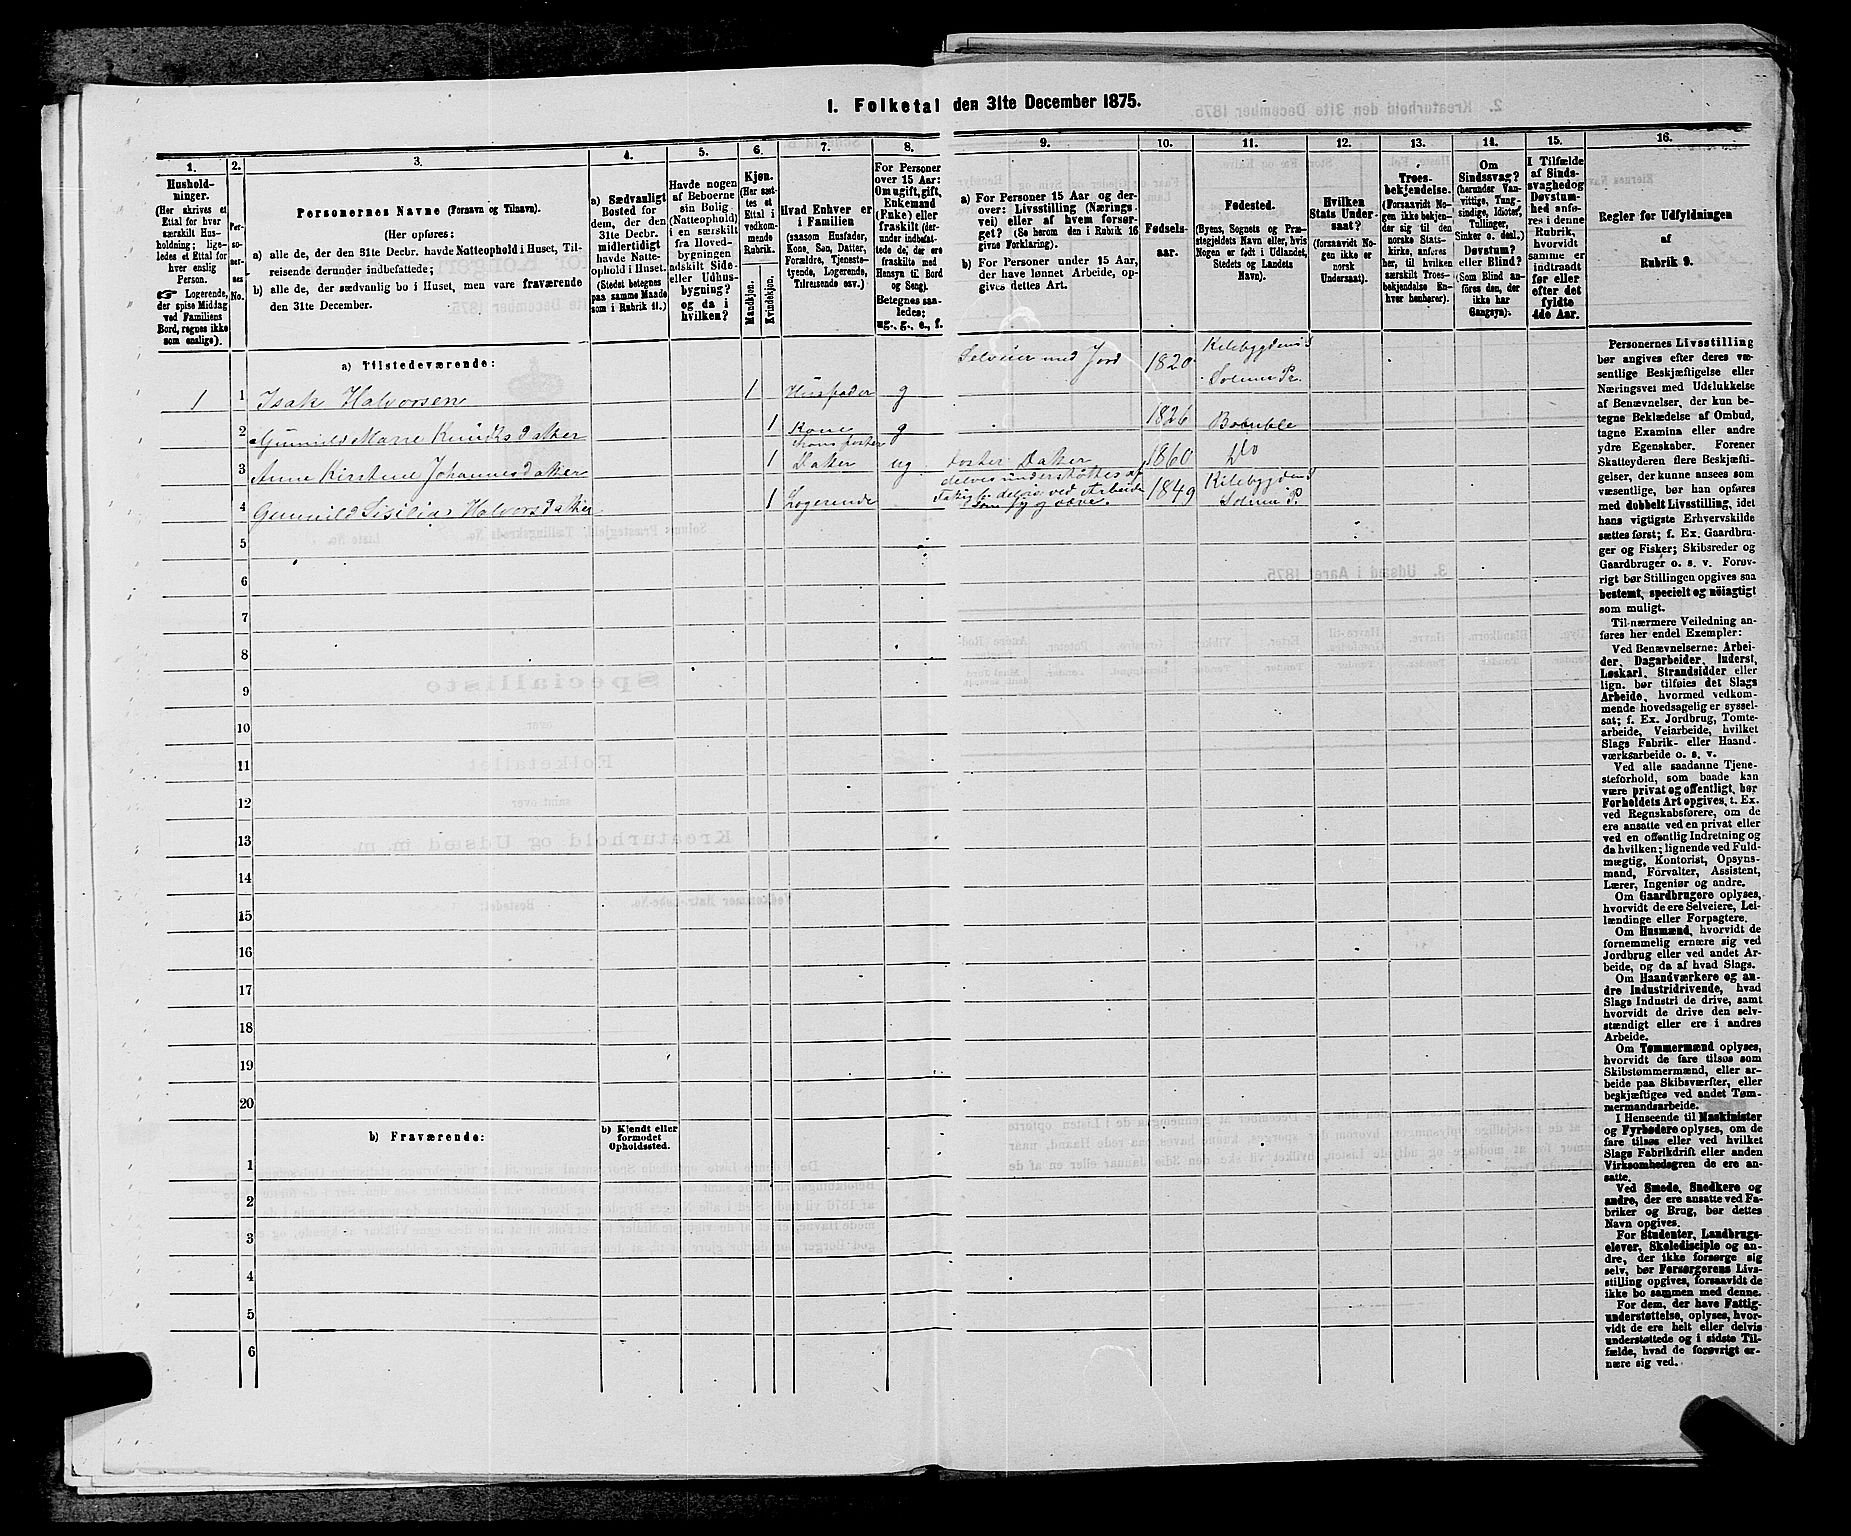 1. Folketal den 31te December 1875.
1.
Hushold-
ninger.
(Her skrives et
Ettal for hver
særskilt Hus-
holdning; lige-
ledes et Ettal for
hver enslig
Person.
Logerende,
der spise Middag
ved Familiens
Bord, regnes ikke
som enslige).
2.
Per-
so-
ner-
nes
No.
3.
Personernes Navne (Fornavn og Tilnavn).
(Her opføres:
a) alle de, der den 31te Decbr. havde Natteophold i Huset, Til-
reisende derunder indbefattede;
b) alle de, der sædvanlig bo i Huset, men vare fraværende
den 31te December.
4.
a) Sædvanligt
Bosted for
dem, der den
31te Decbr.
midlertidigt
havde Natte-
ophold i Huset.
(Stedet betegnes
paa samme Maade
som i Rubrik 11.)
5.
Havde nogen
af Beboerne
sin Bolig
(Natteophold)
i en særskilt
fra Hoved-
bygningen
adskilt Side-
eller Udhus-
bygning?
og da i
hvilken?
6.
Kjøn.
(Her sæt-
tes et
Ettal i
vedkom-
mende
Rubrik.
Mandkjøn.
Kvindekjøn.
7.
Hvad Enhver er
i Familien
(saasom Husfader,
Kone, Søn, Datter,
Forældre, Tjeneste-
tyende, Logerende,
Tilreisende osv.)
8.
For Personer
over 15 Aar:
Om ugift, gift,
Enkemand
(Enke) eller
fraskilt (der-
under indbefat-
tede de, der ere
fraskilte med
Hensyn til Bord
og Seng).
Betegnes saa-
ledes:
ug., g., e., f.
9.
a) For Personer 15 Aar og der-
over: Livsstilling (Nærings-
vei) eller af hvem forsør-
get? (Se herom den i Rubrik 16
givne Forklaring).
b) For Personer under 15 Aar,
der have lønnet Arbeide, op-
gives dettes Art.
10.
Fødsels-
aar.
11.
Fødested.
(Byens, Sognets og Præ-
stegjeldets Navn eller, hvis
Nogen er født i Udlandet,
Stedets og Landets
Navn).
12.
Hvilken
Stats Under-
saat?
(forsaavidt No-
gen ikke er
norsk
Undersaat).
13.
Troes-
bekjendelse.
(Forsaavidt No-
gen ikke bekjen-
der sig til den
norske Stats-
kirke, anføres
her, til hvilken
særskilt Troes-
bekjendelse En-
hver henhører).
14.
Om
Sindssvag?
(herunder Van-
vittige, Tung-
sindige, Idioter,
Tullinger,
Sinker o. desl.)
eller Blind?
Døvstum?
(Som Blind an-
føres den, der
ikke har
Gangsyn).
15.
I Tilfælde
af Sinds-
svaghed og
Døvstum-
hed anfø-
res i denne
Rubrik,
hvorvidt
samme er
indtraadt
før eller
efter det
fyldte
4de Aar.
16.
Regler for Udfyldningen
af
Rubrik 9.
a) Tilstedeværende:
1 1 Isak Halvorsen 1 Husfader g Selveier med Jord 1820 Kilebygdens S Solum Pr.
2 Gunnild Marie Knudsdatter 1 Kone g 1826 Bamble
3 Anne Kirstine Johannesdatter 1 Datter ug 1860 Do
4 Gunnild Sisilia Halvorsdatter 1 Logerende 1849 Kilebygdens S Solum P.
5
6
7
8
9
10
11
12
13
14
15
16
17
18
19
20
b) Fraværende:
b) Kjendt eller
formodet
Opholdssted.
1
2
3
4
5
6
Personernes Livsstilling
bør angives efter deres væ-
sentlige Beskjæftigelse eller
Næringsvei med Udelukkelse
af Benævnelser, der kun be-
tegne Beklædelse af Ombud,
tagne Examina eller andre
ydre Egenskaber. Forener
Skatteyderen flere Beskjæfti-
gelser, der kunne ansees som
væsentlige, bør han opføres
med dobbelt Livsstilling, idet
hans vigtigste Erhvervskilde
sættes først; f. Ex. Gaardbru-
ger og Fisker; Skibsreder og
Gaardbruger o. s. v. Forøv-
rigt bør Stillingen opgives saa
bestemt, specielt og nöiagtigt
som muligt.
Til nærmere Veiledning an-
føres her endel Exempler:
Ved Benævnelserne: Arbei-
der, Dagarbeider, Inderst,
Løskarl, Strandsidder eller
lign. bør tilføies det Slags
Arbeide, hvormed vedkom-
mende hovedsagelig er syssel-
sat; f. Ex. Jordbrug, Tomte-
arbeide, Veiarbeide, hvilket
Slags Fabrik- eller Haand-
værksarbeide o. s. v.
Ved alle saadanne Tjene-
steforhold, som baade kan
være privat og offentligt, bør
Forholdets Art opgives, t. Ex.
ved Regnskabsførere, om de
ere ansatte ved en privat eller
ved en offentlig Indretning og
da hvilken; lignende ved Fuld-
mægtig, Kontorist, Opsyns-
mand, Forvalter, Assistent,
Lærer, Ingeniør og andre.
Om Gaardbrugere oplyses,
hvorvidt de ere Selveiere, Lei-
lændinge eller Forpagtere.
Om Husmænd, hvorvidt de
fornemmelig ernære sig ved
Jordbrug eller ved andet Ar-
beide, og da af hvad Slags.
Om Haandværkere og an-
dre Industridrivende, hvad
Slags Industri de drive, samt
hvorvidt de drive den selv-
stændigt eller ere i andres
Arbeide.
Om Tømmermænd oplyses,
hvorvidt de fare tilsøs som
Skibstømmermænd, eller ar-
beide paa Skibsværfter, eller
beskjæftiges ved andet Tøm-
mermandsarbeide.
I Henseende til Maskinister
og Fyrbødere oplyses, om de
fare tilsøs eller ved hvilket
Slags Fabrikdrift eller anden
Virksomhedsgren de ere an-
satte.
Ved Smede, Snedkere og
andre, der ere ansatte ved Fa-
briker og Brug, bør dettes
Navn opgives.
For Studenter, Landbrugs-
elever, Skoledisciple og an-
dre, der ikke forsørge sig
selv, bør Forsørgerens Livs-
stilling opgives, forsaavidt de
ikke bo sammen med denne.
For dem, der have Fattig-
understøttelse, oplyses, hvor-
vidt de ere helt eller delvis
understøttede og i sidste Til-
fælde, hvad de forøvrigt er-
nære sig ved.